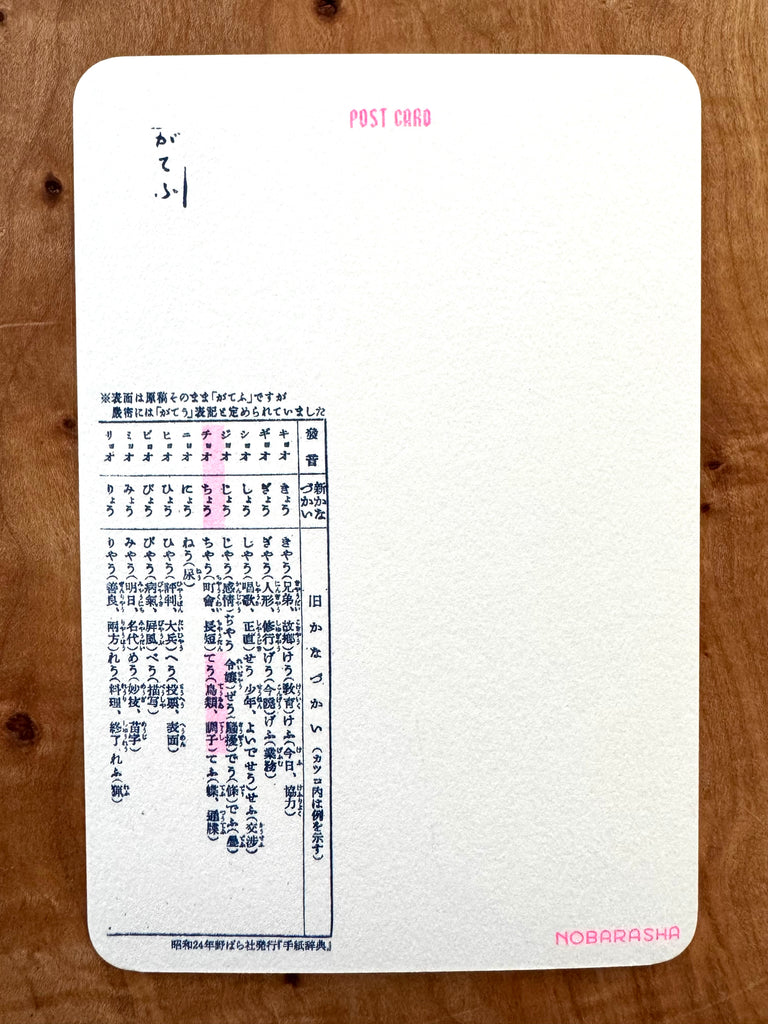 POST CARD
がてふ
※表面は原稿そのまま「がてふ」ですが
厳密には「がてう」表記と定められていました
發音 新かなづかい 旧かなづかい(カツコ内は例を示す)
キョオ きょう きやう(兄弟、故郷)けう(教育)けふ(今日、協力)
ギョオ ぎょう ぎやう(人形、修行)げう(今暁)げふ(業務)
ショオ しょう しやう(唱歌、正直)せう 少年、よいでせう)せふ(交渉)
ジョオ じょう じやう(感情)ぢやう 令嬢)ぜう(騒擾)でう(條)でふ(疊)
チョオ ちょう ちやう(町會、長短)てう(鳥類、調子)てふ(蝶、通牒)
ニョオ にょう ねう(尿)
ヒョオ ひょう ひやう(評判、大兵)へう(投票、表面)
ビョオ びょう びやう(病氣、屏風)べう(描写)
ミョオ みょう みやう(明日、名代)めう(妙技、苗字)
リョオ りょう りやう(善良、兩方)れう(料理、終了)れふ(猟)
昭和24年野ばら社発行『手紙辞典』
NOBARASHA